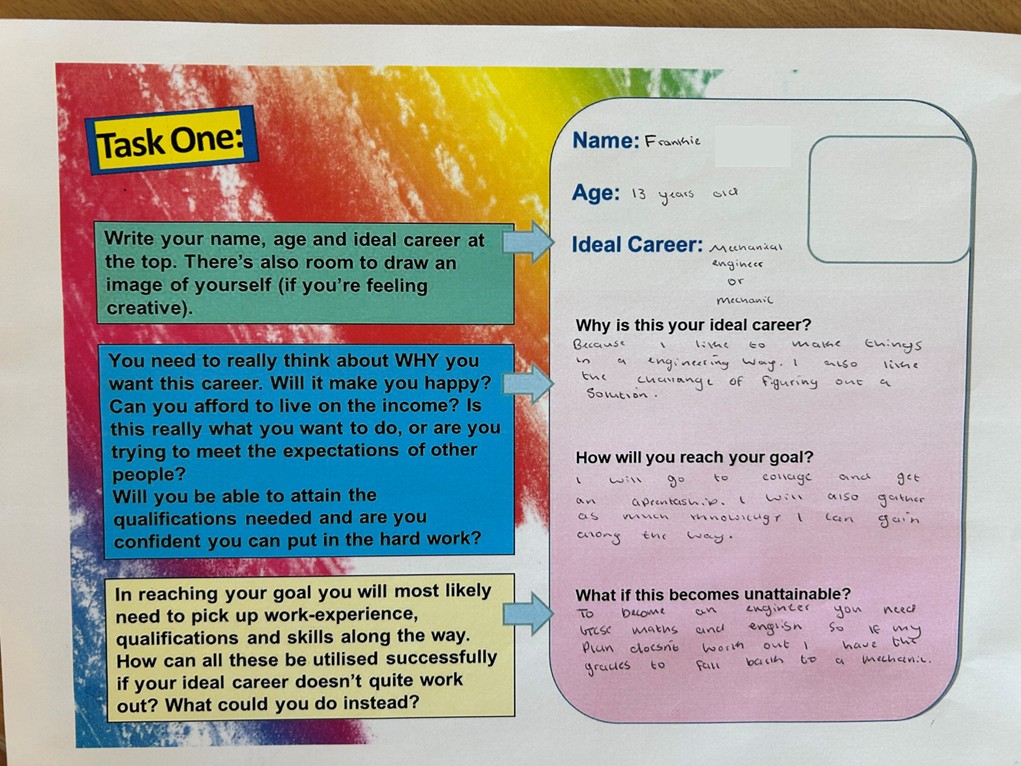 Task One:
Name: Frankie
Age: 13 years old
Ideal Career: Mechanical
engineer
or
mechanic
Write your name, age and ideal career at
the top. There's also room to draw an
image of yourself (if you're feeling
creative).
Why is this your ideal career?
Because I like to make things
in a engineering way. I also like
the challange of figuring out a
solution.
You need to really think about WHY you
want this career. Will it make you happy?
Can you afford to live on the income? Is
this really what you want to do, or are you
trying to meet the expectations of other
people?
Will you be able to attain the
qualifications needed and are you
confident you can put in the hard work?
How will you reach your goal?
I will go to collage and get
an aprentaship. I will also gather
as much knowledge I can gain
along the way.
In reaching your goal you will most likely
need to pick up work-experience,
qualifications and skills along the way.
How can all these be utilised successfully
if your ideal career doesn't quite work
out? What could you do instead?
What if this becomes unattainable?
To become an engineer you need
gcse maths and english so if my
plan doesnt work out I have the
grades to fall back to a mechanic.